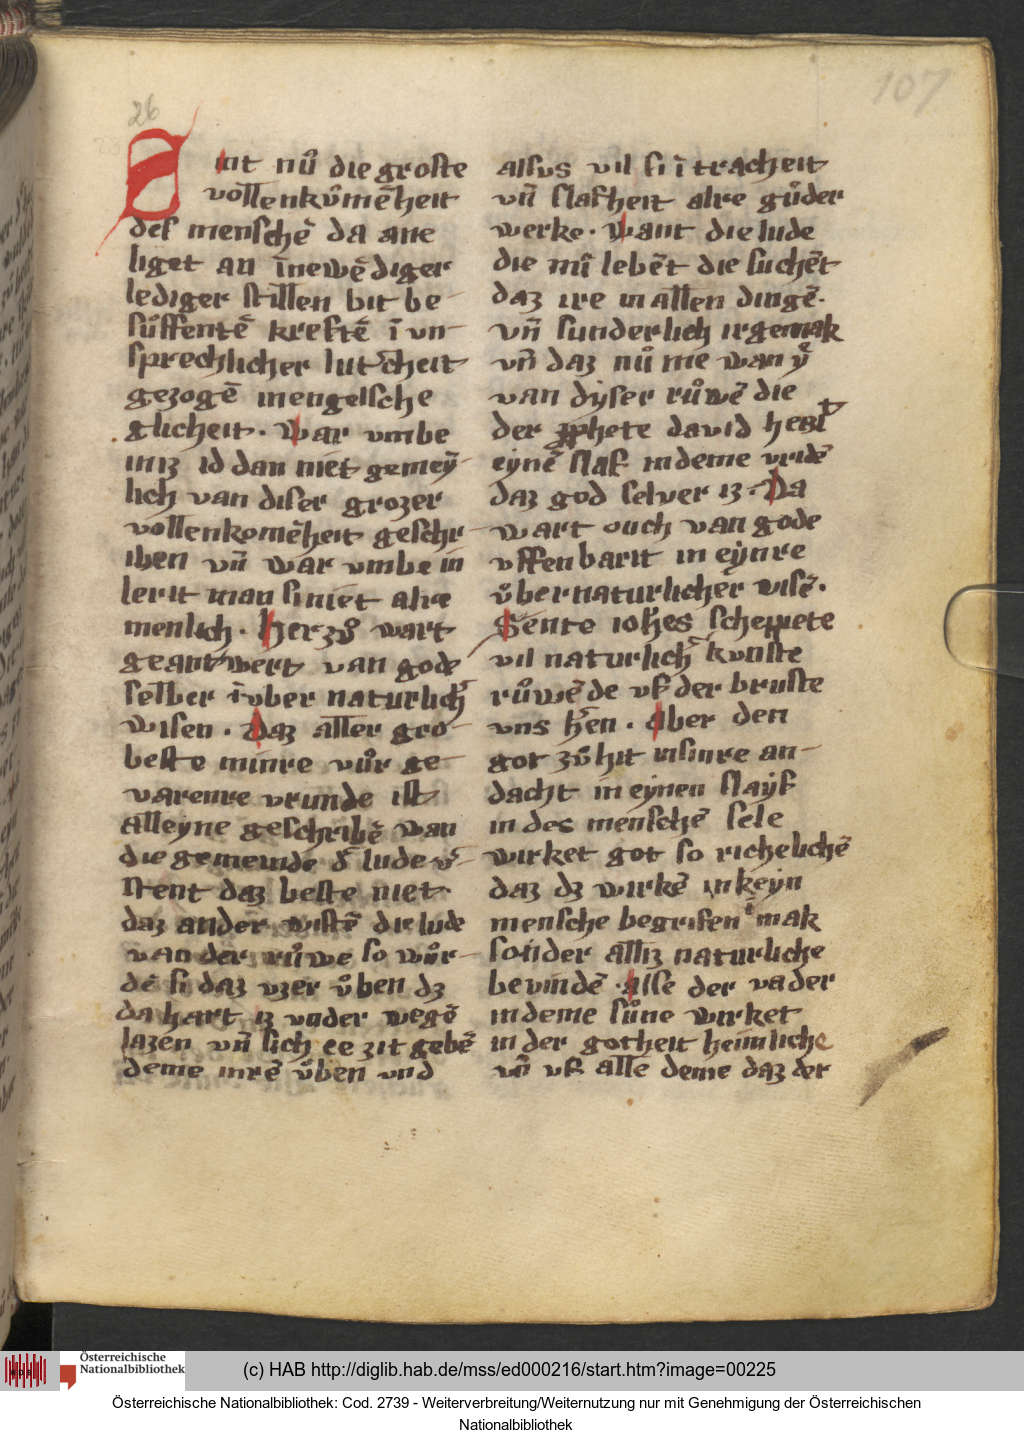 26
107
Sint nuͦ die groste
vollenkuͦmēheit
des menschē da ane
liget an īnewēdiger
lediger stillen bit be-
suͦffentē kreftē ī vn-
sprechlicher lutˀcheit
gezogē in engelsche
glicheit. War vmbe
in iz id dan niet gemeẏ-
lich van diser grozer
vollenkomēheit geschr-
iben vn̄ war vmbe in
lerit man si niet alre
menlich. Herzuͦ wart
geantwert van gode
selber ī vber naturlichˀ
wisen. Daz aller gro-
beste minre vuͦr ge-
varenre vrunde ist
alleyne geschribē wan
die gemeinde dˀ lude vˀ-
stent daz beste niet
daz ander wistē die lude
van der ruͦwe so wuͦr-
dē si daz vzer uͦben dz
da hart iz vnder wegē
lazen vn̄ sich ee zit gebē
deme inrē uͦben vnd
alsus vil si ī tracheit
vn̄ slafheit alre guͦder
werke. Want die lude
die mī lebēt die suchēt
daz ire in allen dingē.
vn̄ sunderlich ir gemak
vn̄ daz nuͦ nie wan ẏ
van dyser ruͦwē die
der ꝓphete david heist
eynē slaf in deme vridē
daz god selver iz. Da
wart ouch van gode
vffenbarit in eẏnre
uͦbernaturlicher wisē.
Sente iohēs scheppete
vil naturlichˀ kunste
ruͦwēde vf der bruste
vns hˀen. aber den
got zuͦ hit in sinre an-
dacht in eynen slaẏf
in des menschē sele
wirket got so richelichē
daz dz wirkē in keyn
mensche begrifen mak
sonder alliz naturliche
bevindē. alse der vader
in deme suͦne wirket
in der gotheit heimliche
vn̄ vf alle deme daz der
Österreichische
Nationalbibliothek
(c) HAB http://diglib.hab.de/mss/ed000216/start.htm?image=00225
Österreichische Nationalbibliothek: Cod. 2739 - Weiterverbreitung/Weiternutzung nur mit Genehmigung der Österreichischen
Nationalbibliothek